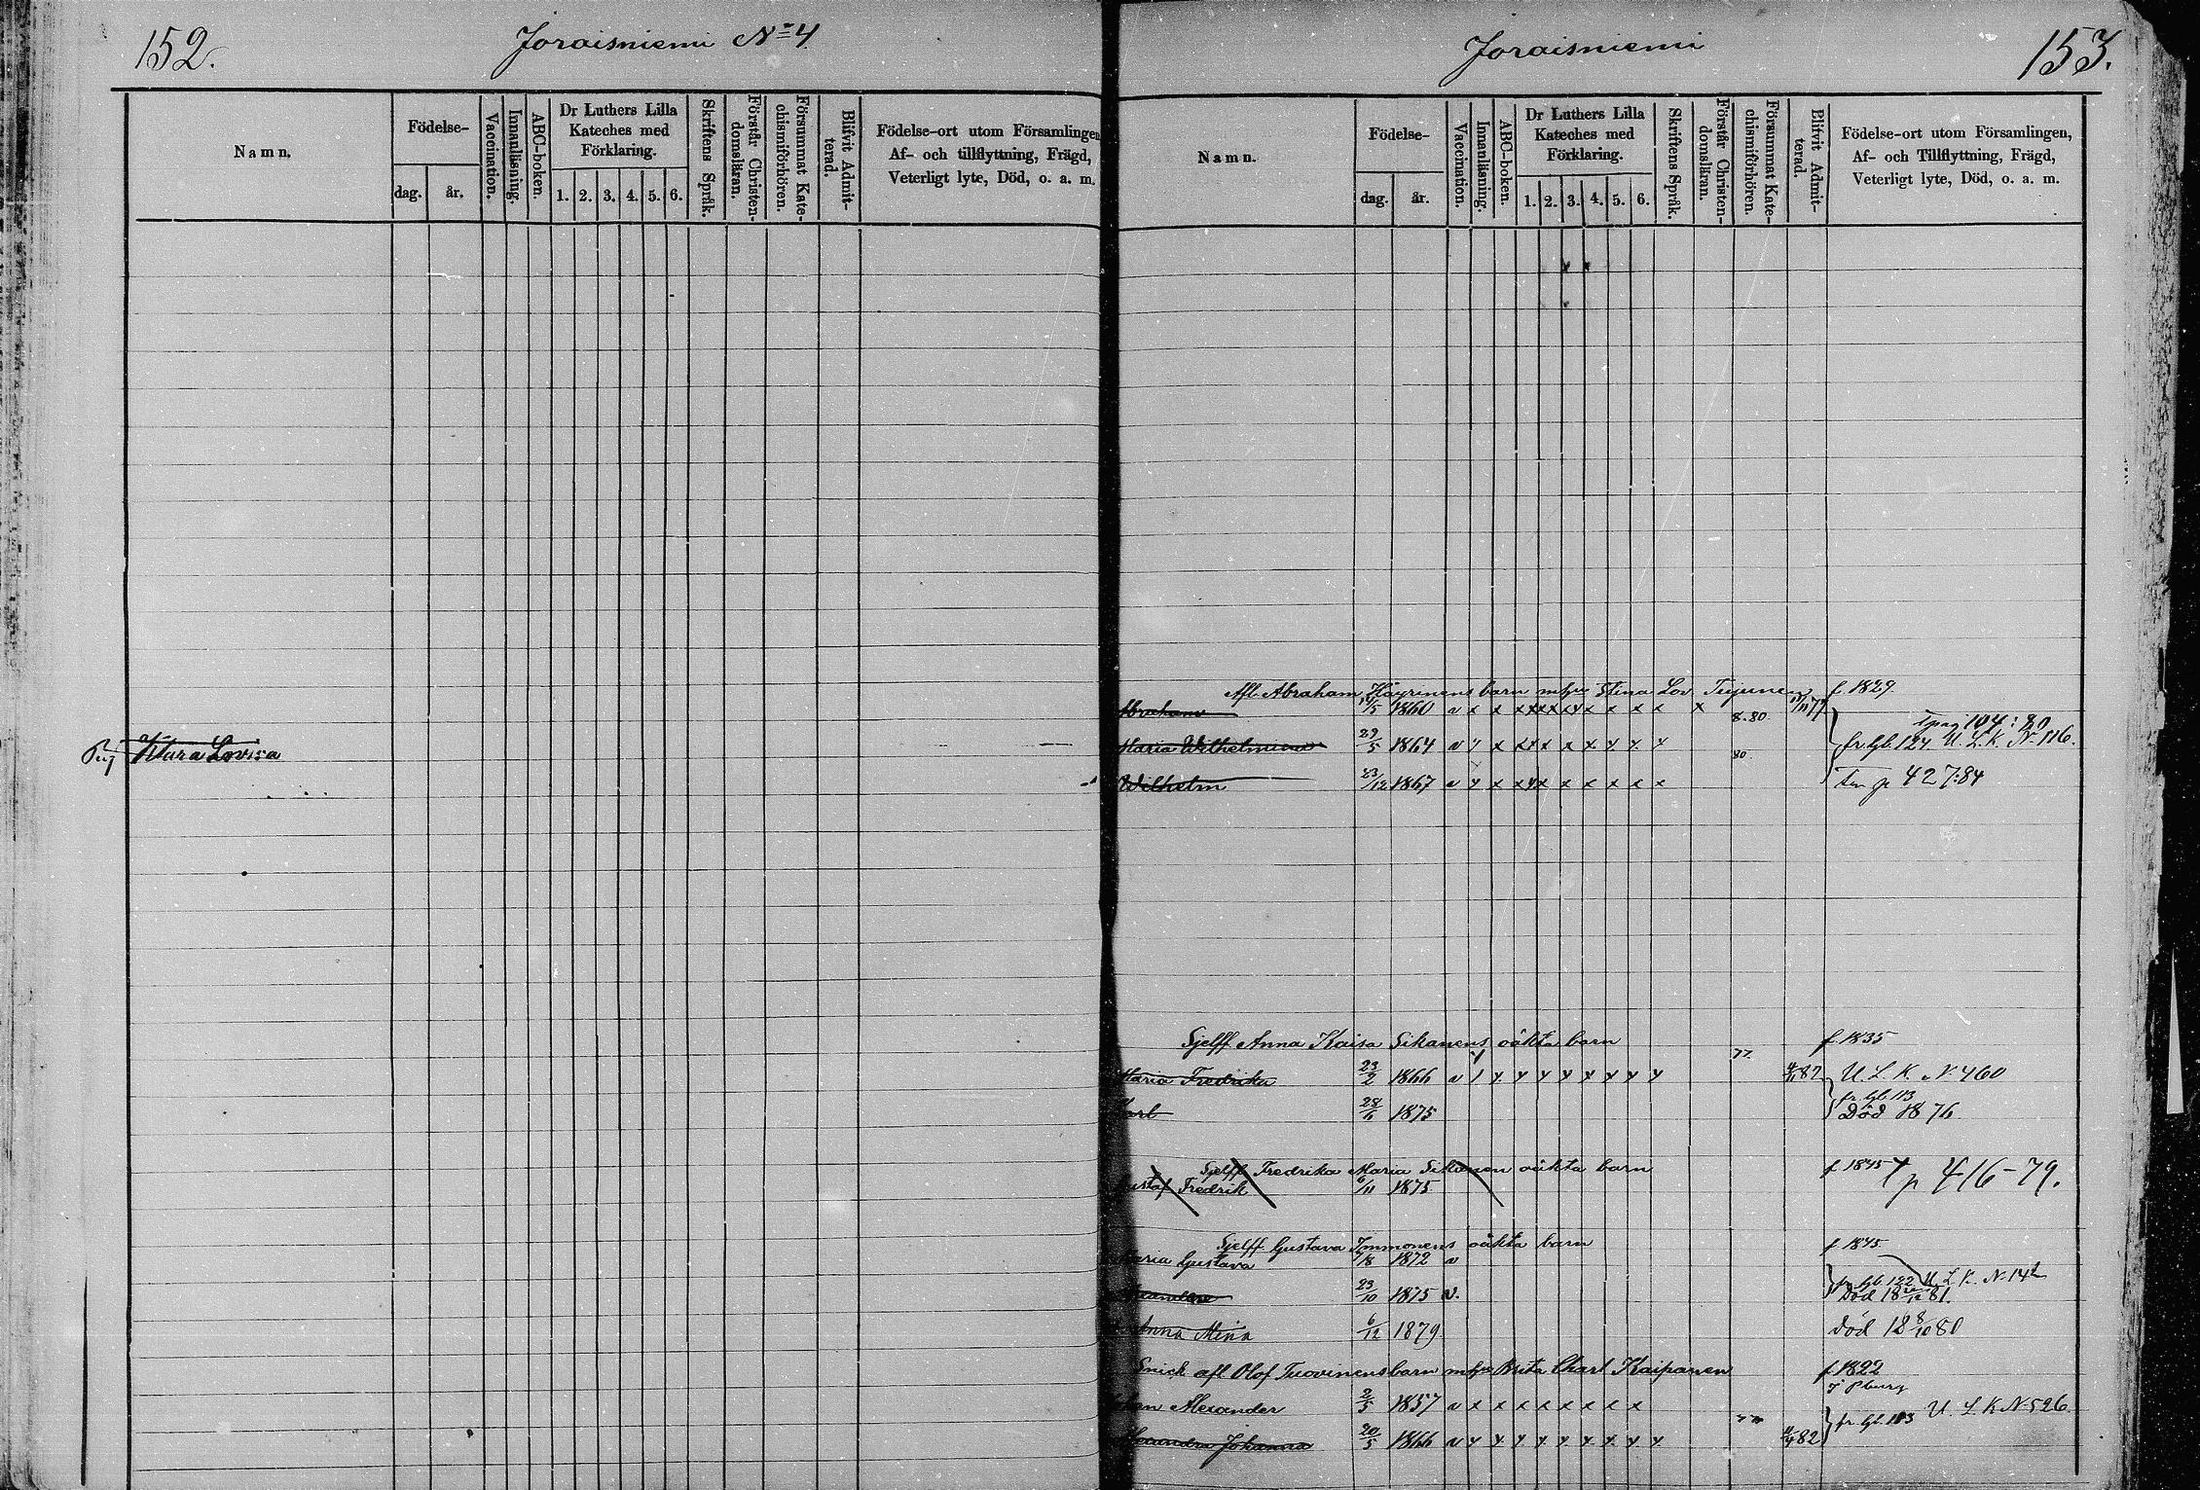 152.
Joraisniemi No 4
Namn.
Födelse-
dag.
år.
Vaccination.
Innanläsning.
ABC-boken.
Dr Luthers Lilla
Kateches med
Förklaring.
1. 2. 3. 4. 5. 6.
Skriftens Språk.
Förstår Christen-
domsläran.
Försummat Kate-
chismiförhören.
Blifvit Admit-
terad.
Födelse-ort utom Församlingen
Af- och tillflyttning, Frägd,
Veterligt lyte, Död, o. a. m.
Klara Lovisa
Joraisniemi
153.
Namn.
Födelse-
dag.
år.
Vaccination.
Innanläsning.
ABC-boken.
Dr Luthers Lilla
Kateches med
Förklaring.
1. 2. 3. 4. 5. 6.
Skriftens Språk.
Förstår Christen-
domsläran.
Försummat Kate-
chismiförhören.
Blifvit Admit-
terad.
Födelse-ort utom Församlingen,
Af- och Tillflyttning, Frägd,
Veterligt lyte, Död, o. a. m.
Afl. Abraham Häyrinens barn m hu Stina Lov f. 1829
Abraham 1860 v x x x x x x x x x x x x 8.80
Maria Wilhelmina 29/5 1864 80 fr. hb. 124 U. L. K. N. 116.
Wilhelm 23/12 1867 p 427:84
Sjelff Anna Kaisa Sikanens oäkta barn f. 1835
Maria Fredrika 23/2 1866 77 U. L. K. N. 460
fr. hb. 113
28/6 1875 Död 1876
Sjelff Fredrika Maria Sikanen oäkta barn f. 1845 p 416-79.
Gustaf Fredrik 6/11 1875
Sjelff Gustava Immonens oäkta barn f. 1845
Maria Gustava 7/8 1872 v
fr. hb. 122 U. L. K. N. 142
23/10 1875 v.
Anna Mina 6/12 1879 död 18 8/10 80
Snick afl Olof Tuovinens barn m hu Brita Charl Kaipanen f. 1822
Johan Alexander 2/5 1857 v x x x x x x x x
fr. hb. 113 U. L. K N. 526
Alexandra Johanna 20/5 1866